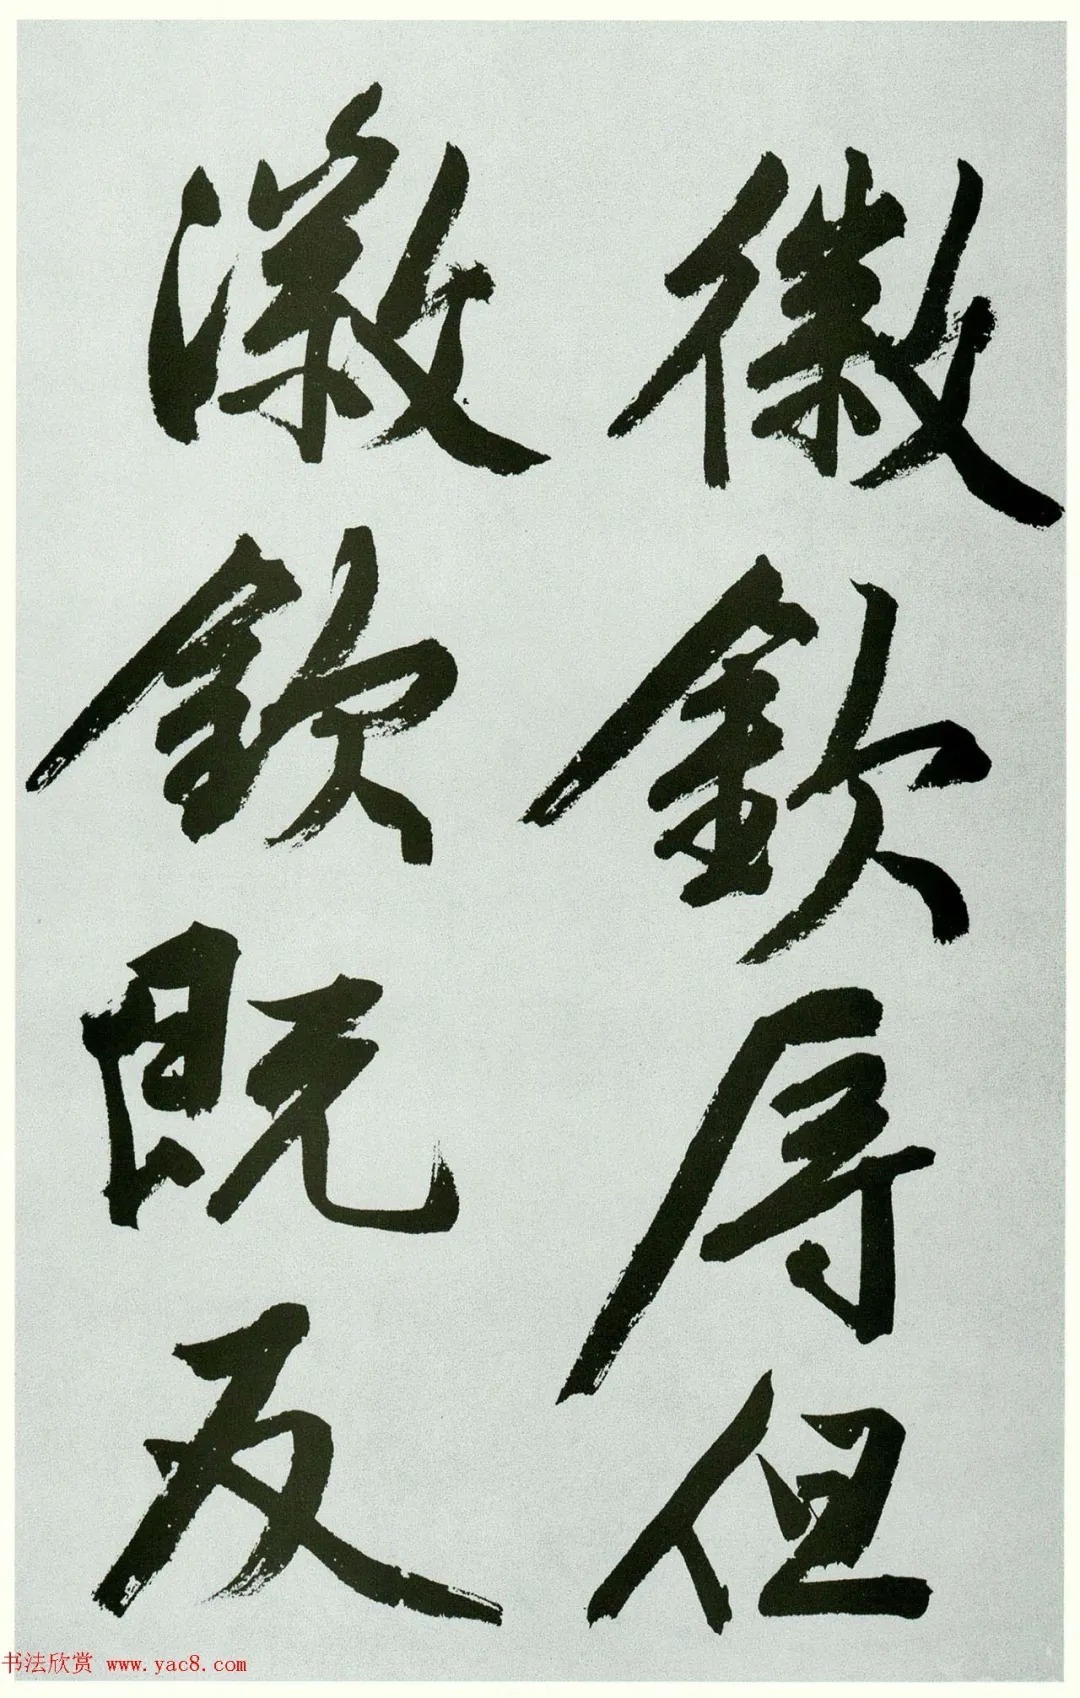 徽欽辱但
徽欽既反
书法欣赏 www.yac8.com